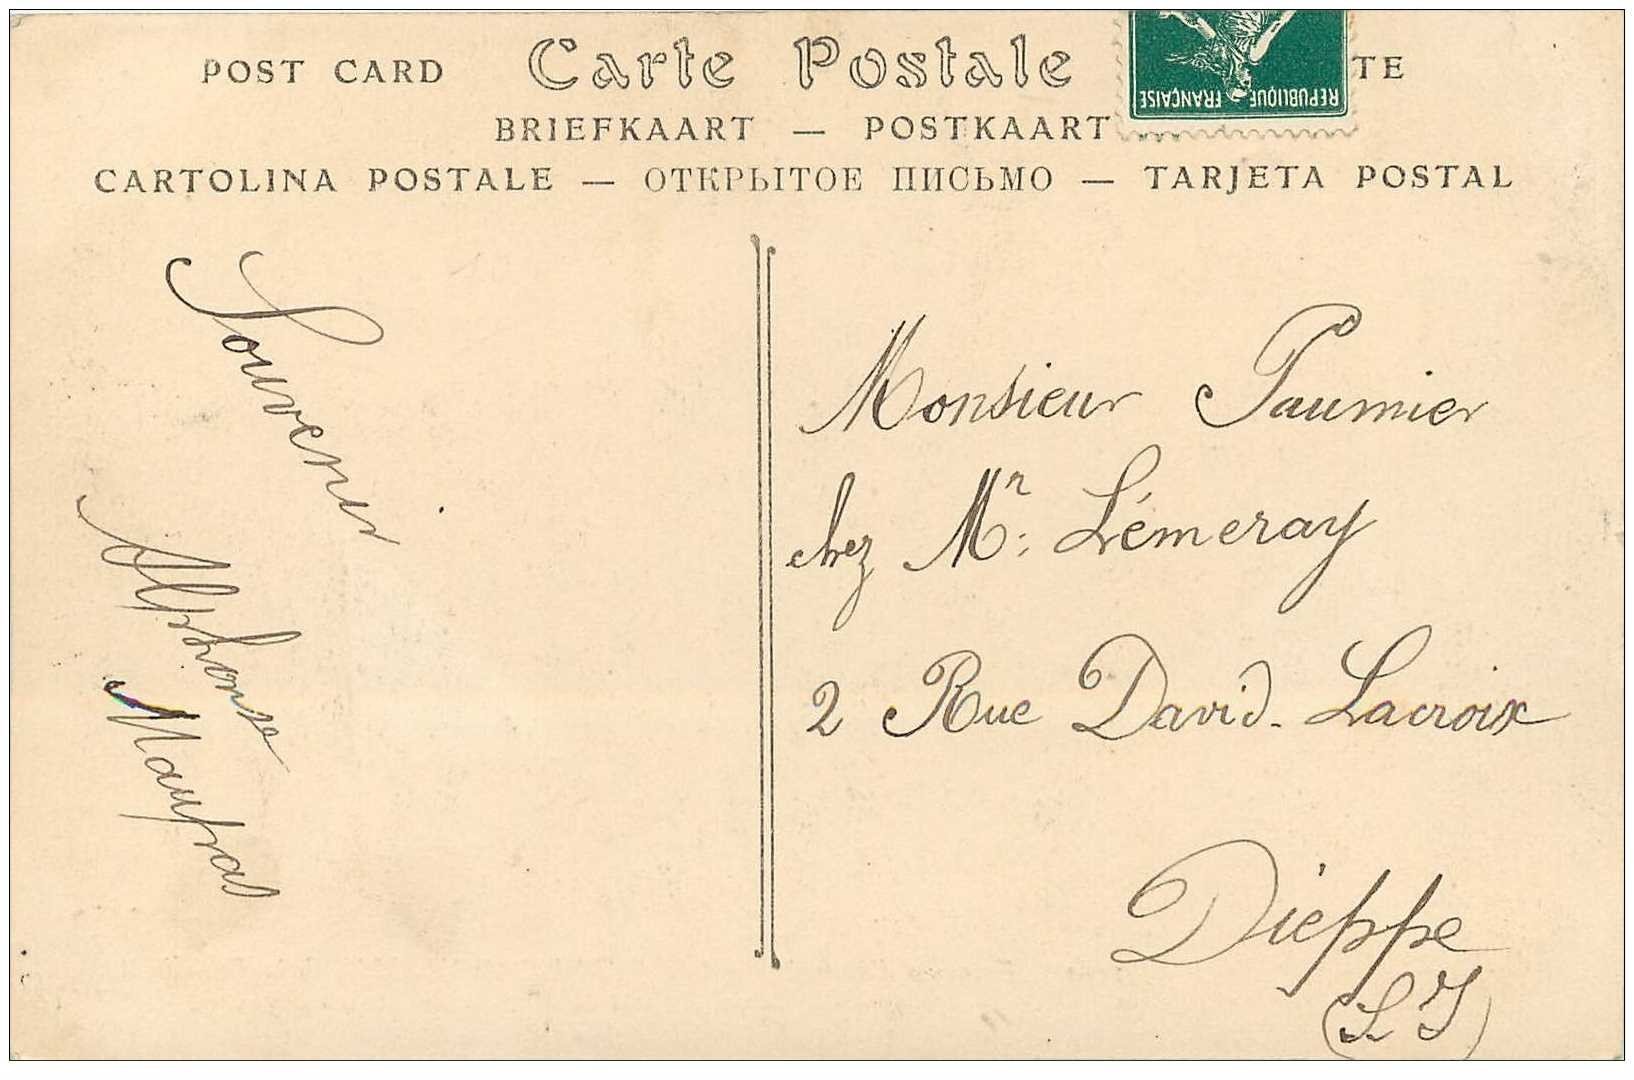 POST CARD Carte Postale TE
REPUBLIQUE FRANÇAISE
BRIEFKAART — POSTKAART
CARTOLINA POSTALE — ОТКРЫТОЕ ПИСЬМО — TARJETA POSTAL
Souvenir
Alphonse
Maufras
Monsieur Paumier
chez Mr. Lémeray
2 Rue David-Lacroix
Dieppe
(S I)